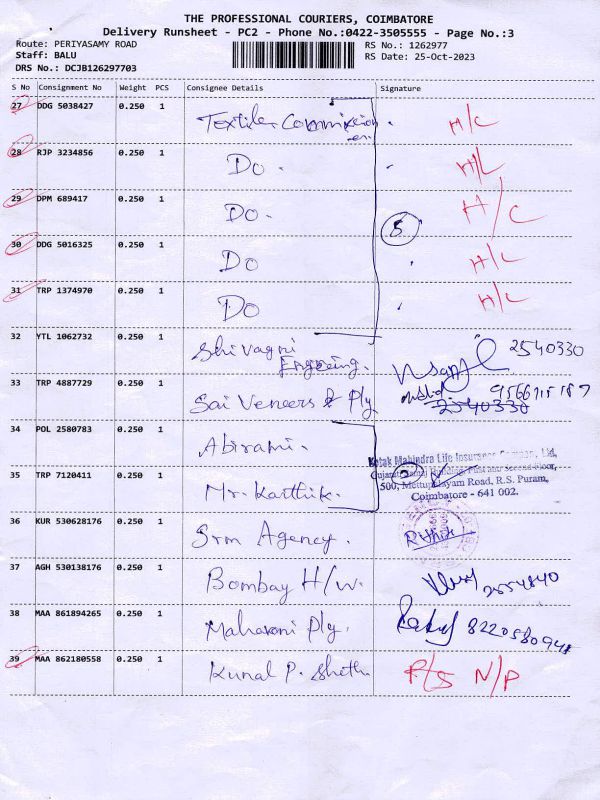 THE PROFESSIONAL COURIERS, COIMBATORE
Delivery Runsheet - PC2 - Phone No.:0422-3505555 - Page No.:3
Route: PERIYASAMY ROAD RS No.: 1262977
Staff: BALU RS Date: 25-Oct-2023
DRS No.: DCJB126297703
S No Consignment No Weight PCS Consignee Details Signature
27 DDG 5038427 0.250 1 Textiles Commission H/C
28 RJP 3234856 0.250 1 Do. H/C
29 DPM 689417 0.250 1 Do. H/C
5
30 DDG 5016325 0.250 1 Do H/C
31 TRP 1374970 0.250 1 Do H/C
32 YTL 1062732 0.250 1 Shivagni 2540330
33 TRP 4887729 0.250 1 Sai Veneers & Ply 2540330
34 POL 2580783 0.250 1 Abirami.
Kotak Mahindra Life Insurance Company Ltd,
35 TRP 7120411 0.250 1 Mr. Karthik. 2
500, Mettupalayam Road, R.S. Puram,
Coimbatore - 641 002.
36 KUR 530628176 0.250 1 Srm Agency.
37 AGH 530138176 0.250 1 Bombay H/W. 2554840
38 MAA 861894265 0.250 1 Maharani Ply.
39 MAA 862180558 0.250 1 Kunal P. Sheth. P/S N/P